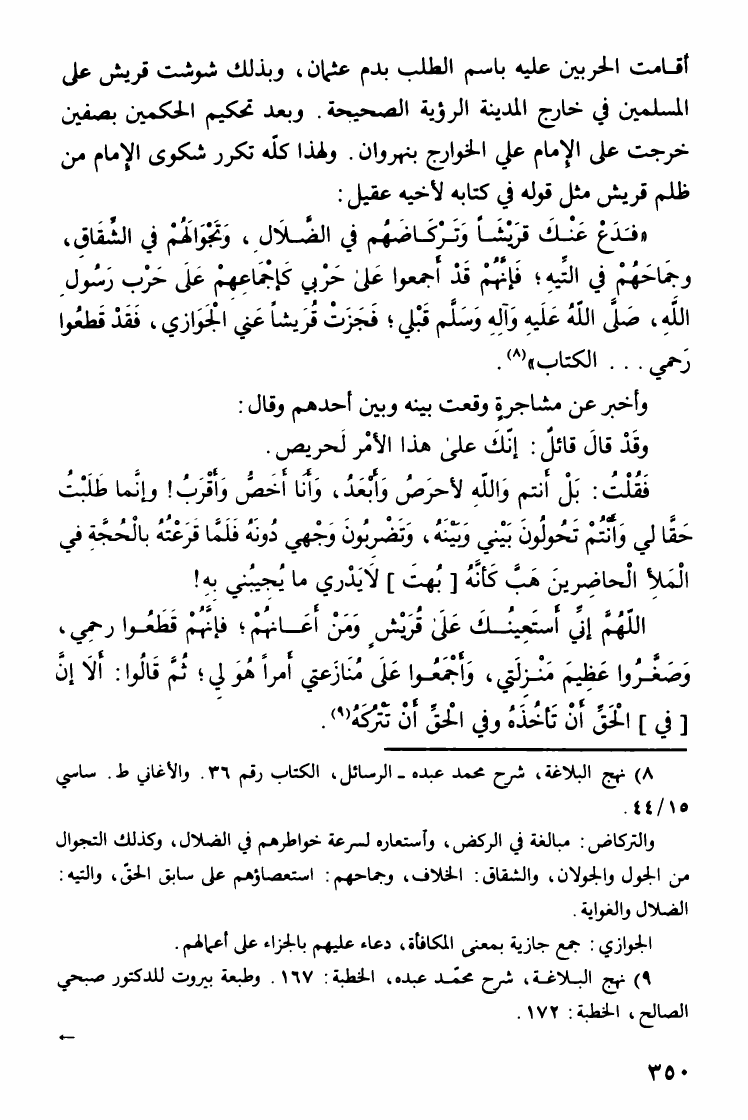 أقامت الحربين عليه باسم الطلب بدم عثمان، وبذلك شوشت قريش على
المسلمين في خارج المدينة الرؤية الصحيحة. وبعد تحكيم الحكمين بصفين
خرجت على الإمام علي الخوارج بنهروان. ولهذا كلّه تكرر شكوى الإمام من
ظلم قريش مثل قوله في كتابه لأخيه عقيل:
«فَدَعْ عَنْكَ قرَيْشَاً وَتَرْكَاضَهُم في الضَّلَالِ، وَتَجْوَالَهُمْ في الشَّقَاقِ،
وجمَاحَهُمْ في التِّيهِ؛ فَإنَّهُمْ قَدْ أَجمعوا عَلىٰ حَرْبي كَإجْمَاعِهِمْ عَلَى حَرْب رَسُولِ
اللَّهِ، صَلَّى اللَّهُ عَلَيهِ وَآلِهِ وَسَلَّم قَبْلي؛ فَجَزَتْ قُرَيشاً عَني الْجَوَازي، فَقَدْ قَطعُوا
رَحمي... الكتاب»(٨).
وأخبر عن مشاجرةٍ وقعت بينه وبين أحدهم وقال:
وقَدْ قالَ قائلٌ: إنّكَ علىٰ هذا الأمْرِ لَحريص.
فَقُلْتُ: بَلْ أنتم وَاللّهِ لأحرَصُ وَأَبْعَدُ، وَأَنَا أَخَصُّ وَأَقْرَبُ! وإنَّما طَلَبْتُ
حَقَّا لي وَأَنْتُمْ تَحُولُونَ بَيْني وَبَيْنَهُ، وَتَضْربُونَ وَجْهي دُونَهُ فَلَمَّا قَرَعْتُهُ بالْحُجَّةِ في
الْمَلأ الْحاضِرينَ هَبَّ كَأنَّهُ [بُهتَ] لَايَدْري ما يُجيبُني بِهِ!
اللّهُمَّ إنِّي أستَعِينُـكَ عَلىٰ قُرَيْشٍ وَمَنْ أَعَـانهُمْ؛ فإنَّهُمْ قَطَعُـوا رحمِي،
وَصَغَّـرُوا عَظِيمَ مَنْـزِلَتي، وَأَجْمَعُـوا عَلَى مُنَازعَتي أمراً هُوَ لي؛ ثُمَّ قَالُوا: أَلَا إنَّ
[في] الْحَقِّ أَنْ تَأخُذَهُ وفي الْحَقِّ أَنْ تَتْرُكَهُ(٩).
٨) نهج البلاغة، شرح محمد عبده ـ الرسائل، الكتاب رقم ٣٦. والأغاني ط. ساسي
١٥/٤٤.
والتركاض: مبالغة في الركض، وأستعاره لسرعة خواطرهم في الضلال، وكذلك التجوال
من الجول والجولان، والشقاق: الخلاف، وجماحهم: استعصاؤهم على سابق الحقّ، والتيه:
الضلال والغواية.
الجوازي: جمع جازية بمعنى المكافأة، دعاء عليهم بالجزاء على أعمالهم.
٩) نهج البلاغـة، شرح محمّـد عبده، الخطبة: ١٦٧. وطبعة بيروت للدكتور صبحي
الصالح، الخطبة: ١٧٢.
←
٣٥٠